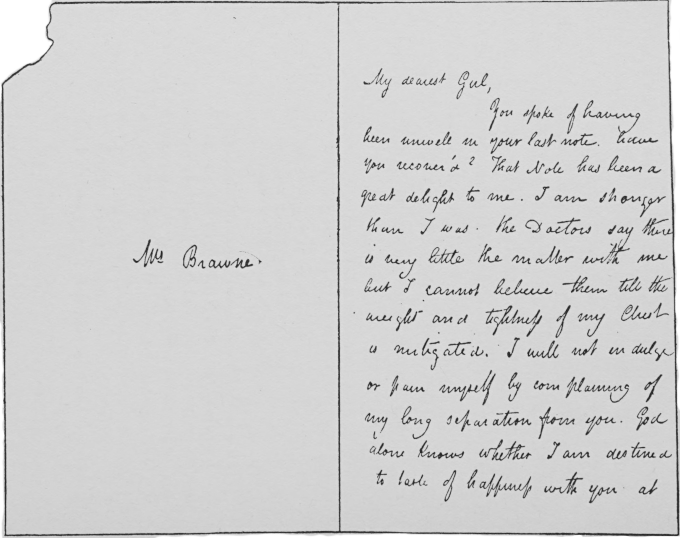 Mrs Brawne.
My dearest Girl,
You spoke of having
been unwell in your last note. have
you recover'd? That Note has been a
great delight to me. I am stronger
than I was. the Doctors say there
is very little the matter with me
but I cannot believe them till the
weight and tightness of my Chest
is mitigated. I will not indulge
or pain myself by complaining of
my long separation from you. God
alone knows whether I am destined
to taste of happiness with you at